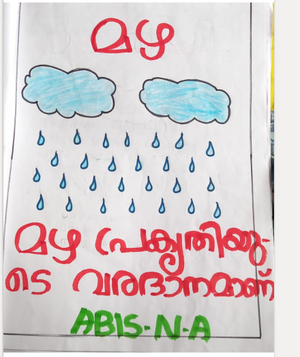 മഴ
മഴ പ്രകൃതിയു-
ടെ വരദാനമാണ്
ABIS-N-A